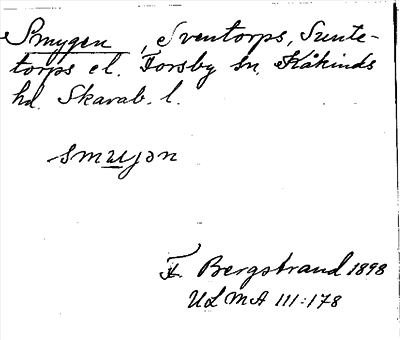 Smygen, Sventorps, Sunte-
torps el. Forsby sn, Kåkinds
hd. Skarab. l.
smɯjən
F. Bergstrand 1898
ULMA 111:178